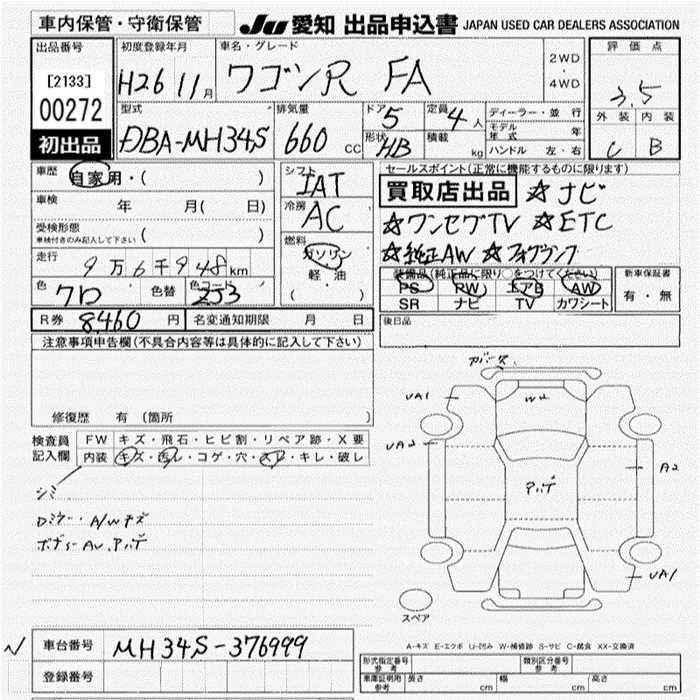 車内保管・守衛保管 JU 愛知 出品申込書 JAPAN USED CAR DEALERS ASSOCIATION
出品番号 初度登録年月 車名・グレード 評価点
[2133] H26 11月 ワゴンR FA 2WD・4WD 3.5
00272 型式 排気量 ドア 5 定員 4人 ディーラー・並行 外装 内装
初出品 DBA-MH34S 660cc 形状 HB 積載 kg モデル年式 年 C B
ハンドル 左・右
車歴 自家用・( ) シフト IAT セールスポイント(正常に機能するものに限ります)
車検 年 月( 日) 冷房 AC 買取店出品 ☆ナビ
受検形態 ( ) ☆ワンセグTV ☆ETC
車検付きのみ記入して下さい
走行 9万6千948km 燃料 ガソリン 軽油 ( ・ ) ☆純正AW ☆フォグランプ
色 クロ 色替 色コード ZJ3 装備品(純正品に限り○をつけてください) 新車保証書
PS PW エアB AW 有・無
SR ナビ TV カワシート
R券 8460円 名変通知期限 月 日 後日品
注意事項申告欄(不具合内容等は具体的に記入して下さい)
修復歴 有(箇所 )
検査員記入欄 FW キズ・飛石・ヒビ割・リペア跡・X要
内装 キズ・汚レ・コゲ・穴・スレ・キレ・破レ
シミ
Dミラー・A/Wキズ
UA1
W2
UA2
A2
UA1
スペア
A-キズ E-エクボ U-凹み W-補修跡 S-サビ C-腐食 XX-交換済
車台番号 MH34S-376999
登録番号
形式指定番号 参考 類別区分番号 参考
車庫証明用 参考 長さ cm 幅 cm 高さ cm